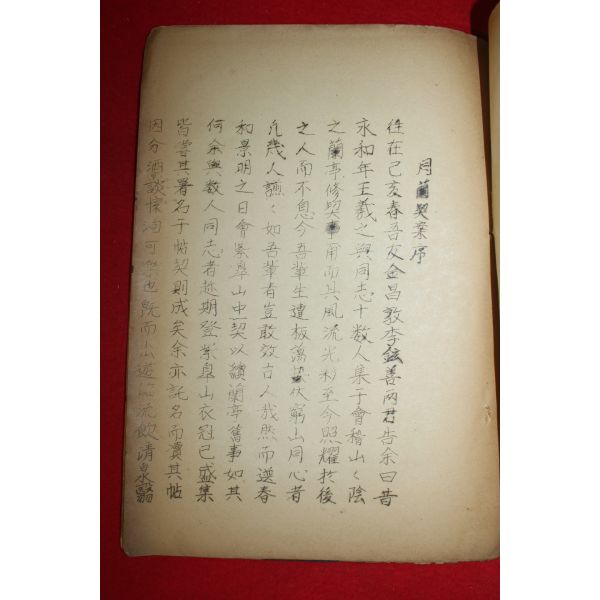 同蘭契案序
往在己亥春吾友金昌敦李鉉善两君告余曰昔
永和年王羲之與同志十数人集于會稽山々陰
之蘭亭修契事用而其風流光彩至今照耀於後
之人而不息今吾輩生遭板蕩 伏窮山同心者
凡幾人讌々如吾輩者豈敢效古人哉然而選春
和景明之日會紫阜山中一契以續蘭亭舊事如其
何余與数人同志者趂期登紫阜山衣冠已盛集
皆書其署名于帖契則成矣余亦託名而賣其帖
因分酒談懷洵可樂也既而出遊臨流飮清泉翳